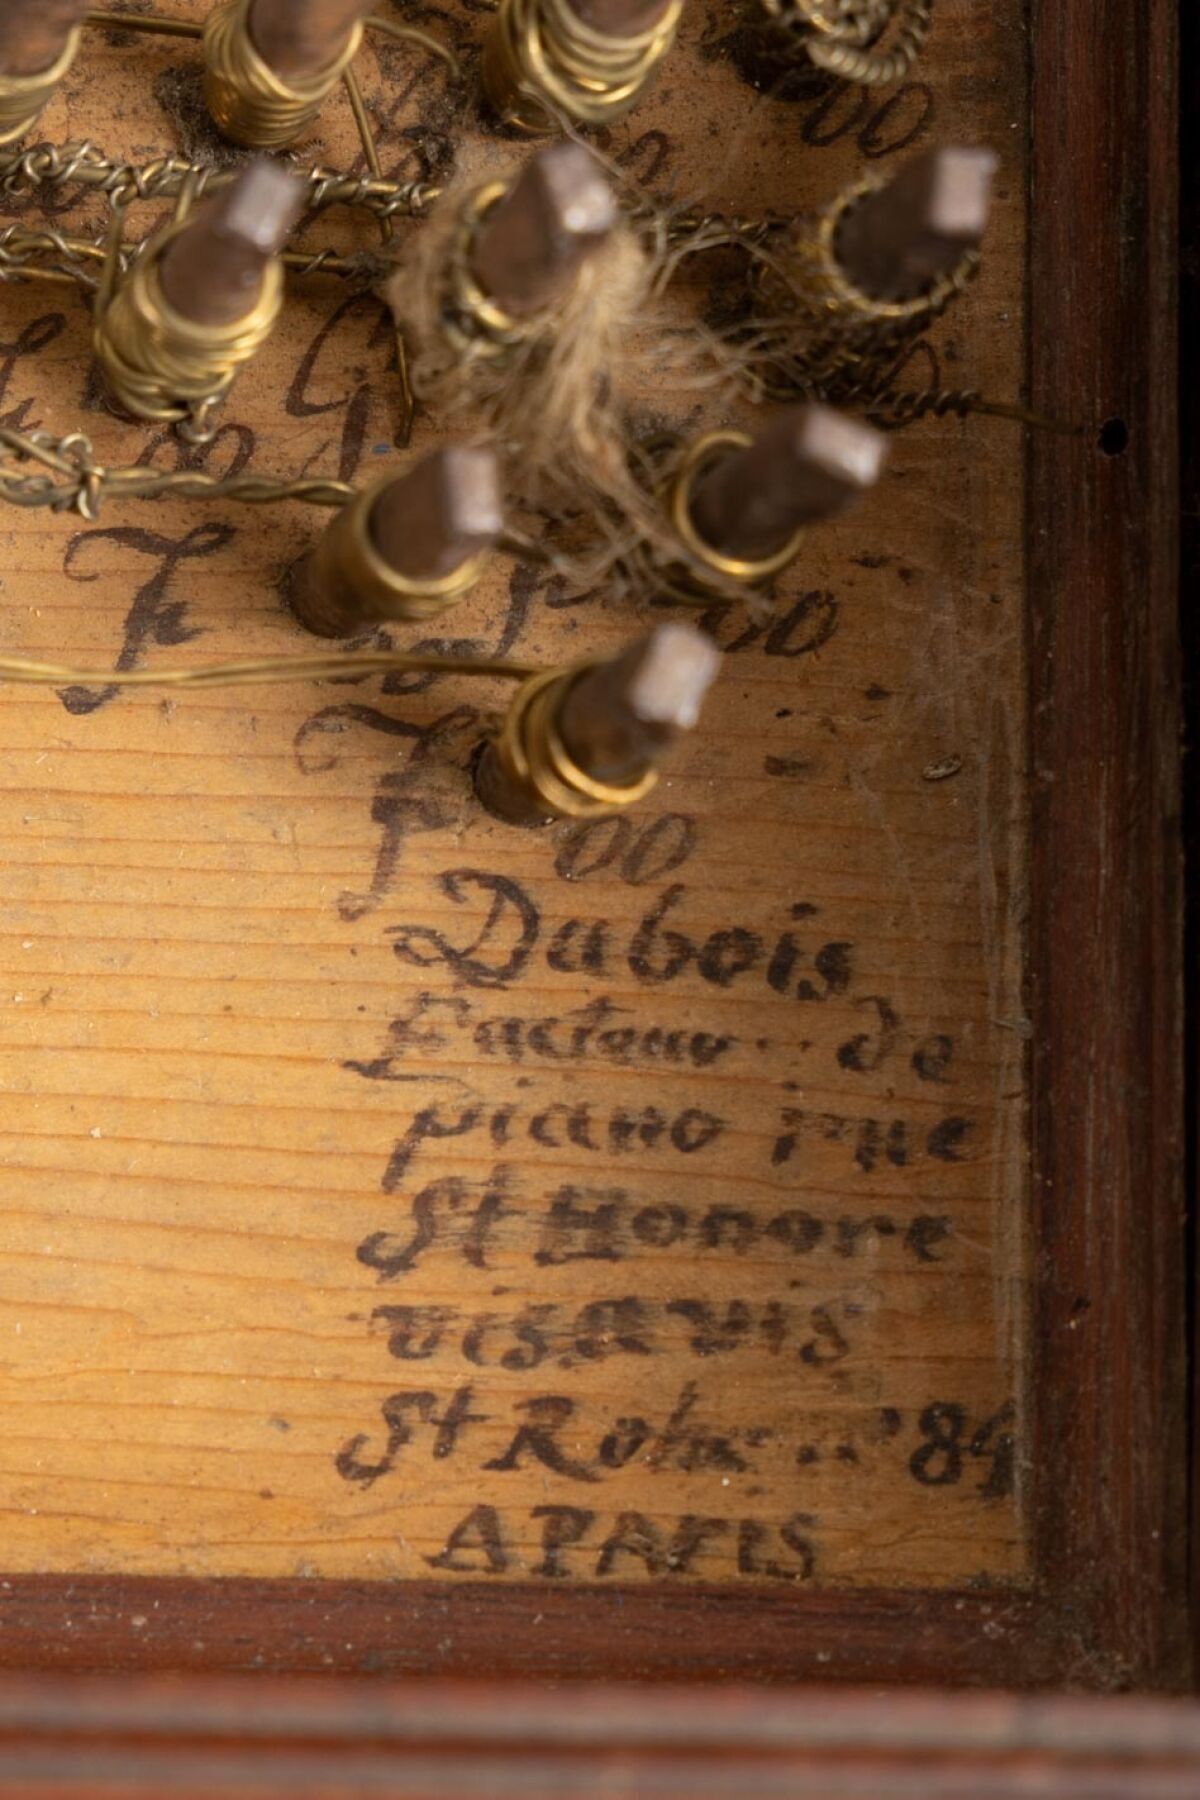 00
G
00
F
00
F
00
Dubois
Facteur de
piano rue
St Honore
visavis
St Roh 84
A PARIS